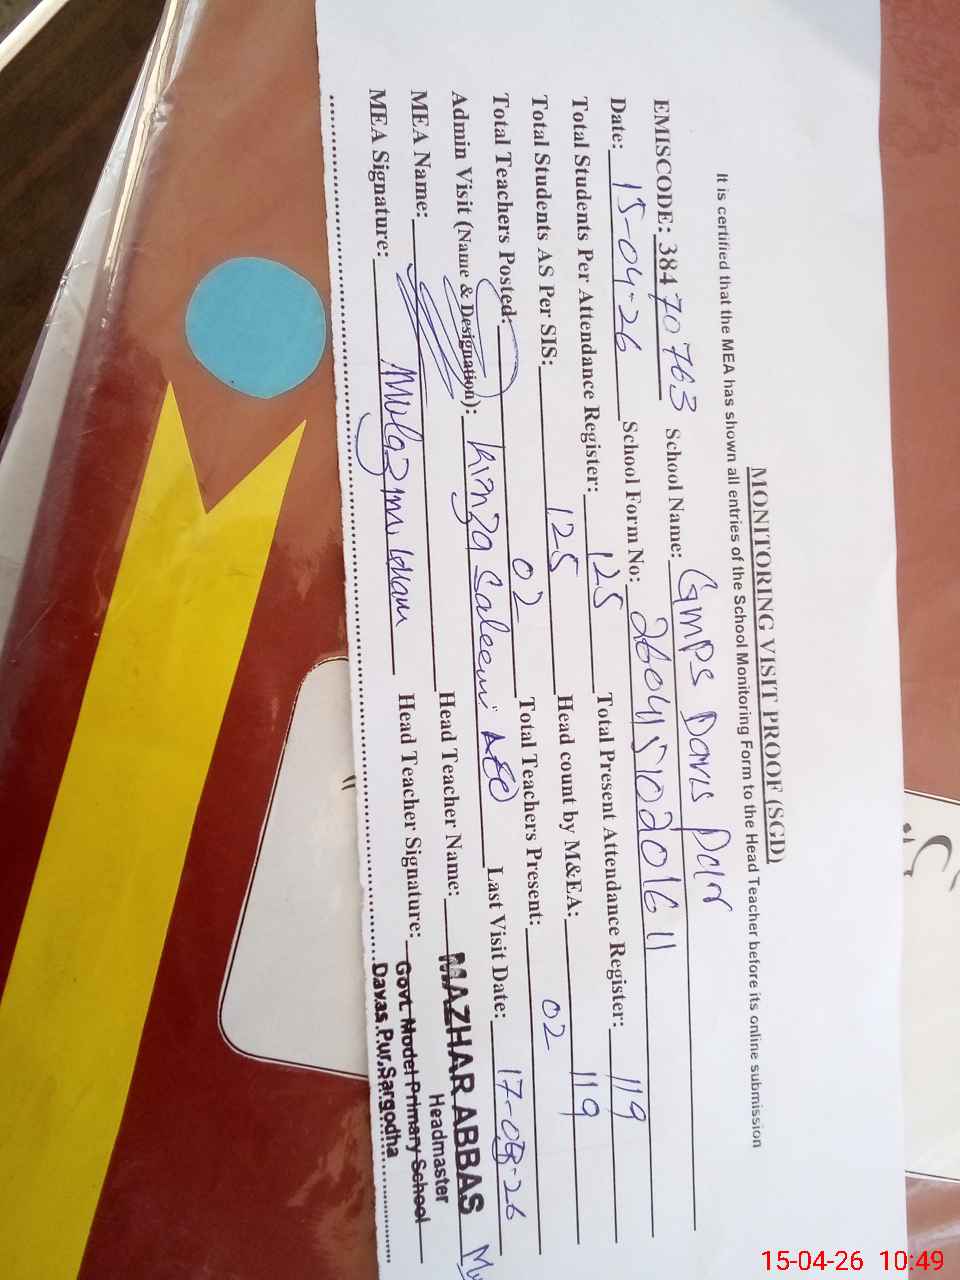 MONITORING VISIT PROOF (SGD)
It is certified that the MEA has shown all entries of the School Monitoring Form to the Head Teacher before its online submission
EMISCODE: 38470763 School Name: GMPS Davis Pur
Date: 15-04-26 School Form No: 26041510201611
Total Students Per Attendance Register: 125 Total Present Attendance Register: 119
Total Students AS Per SIS: 125 Head count by M&EA: 119
Total Teachers Posted: 02 Total Teachers Present: 02
Admin Visit (Name & Designation): Kinza Saleem AEO Last Visit Date: 17-03-26
MEA Name: Head Teacher Name: MAZHAR ABBAS
Headmaster
MEA Signature: Head Teacher Signature: Govt. Model Primary School
Davas Pur, Sargodha
15-04-26 10:49